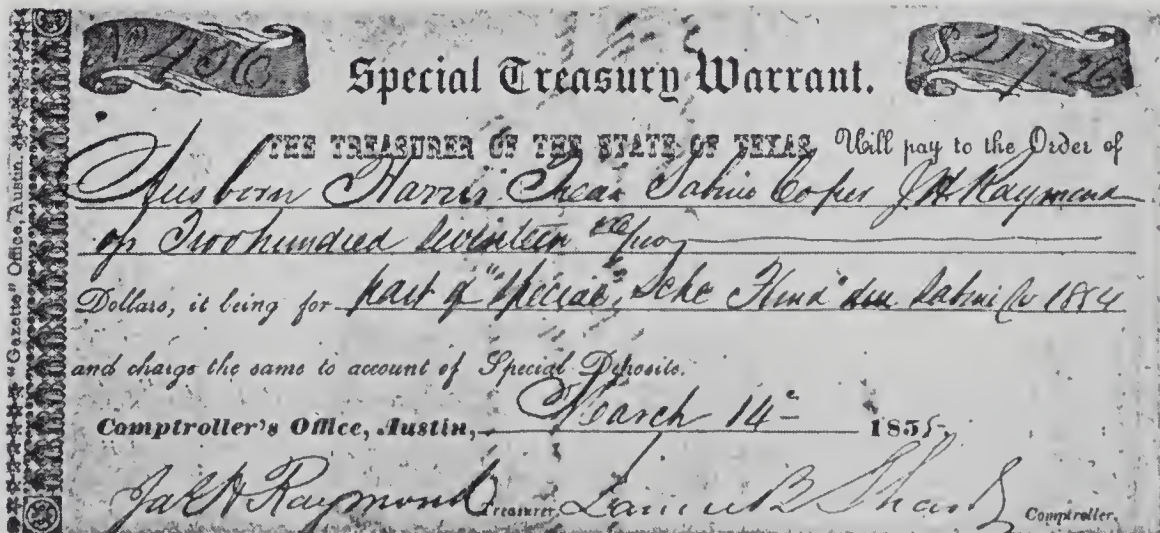 "Gazette" Office, Austin.
No 456
$217.26
Special Treasury Warrant.
THE TREASURER OF THE STATE OF TEXAS, Will pay to the Order of
Ausborn Harris Trea Sabine Co per J H Raymond
Two hundred seventeen
Dollars, it being for part of "special" Fund due Sabine Co 1854
and charge the same to account of Special Deposite.
Comptroller's Office, Austin, March 14 1855.
Jas H Raymond Treasurer. B Shaw Comptroller.